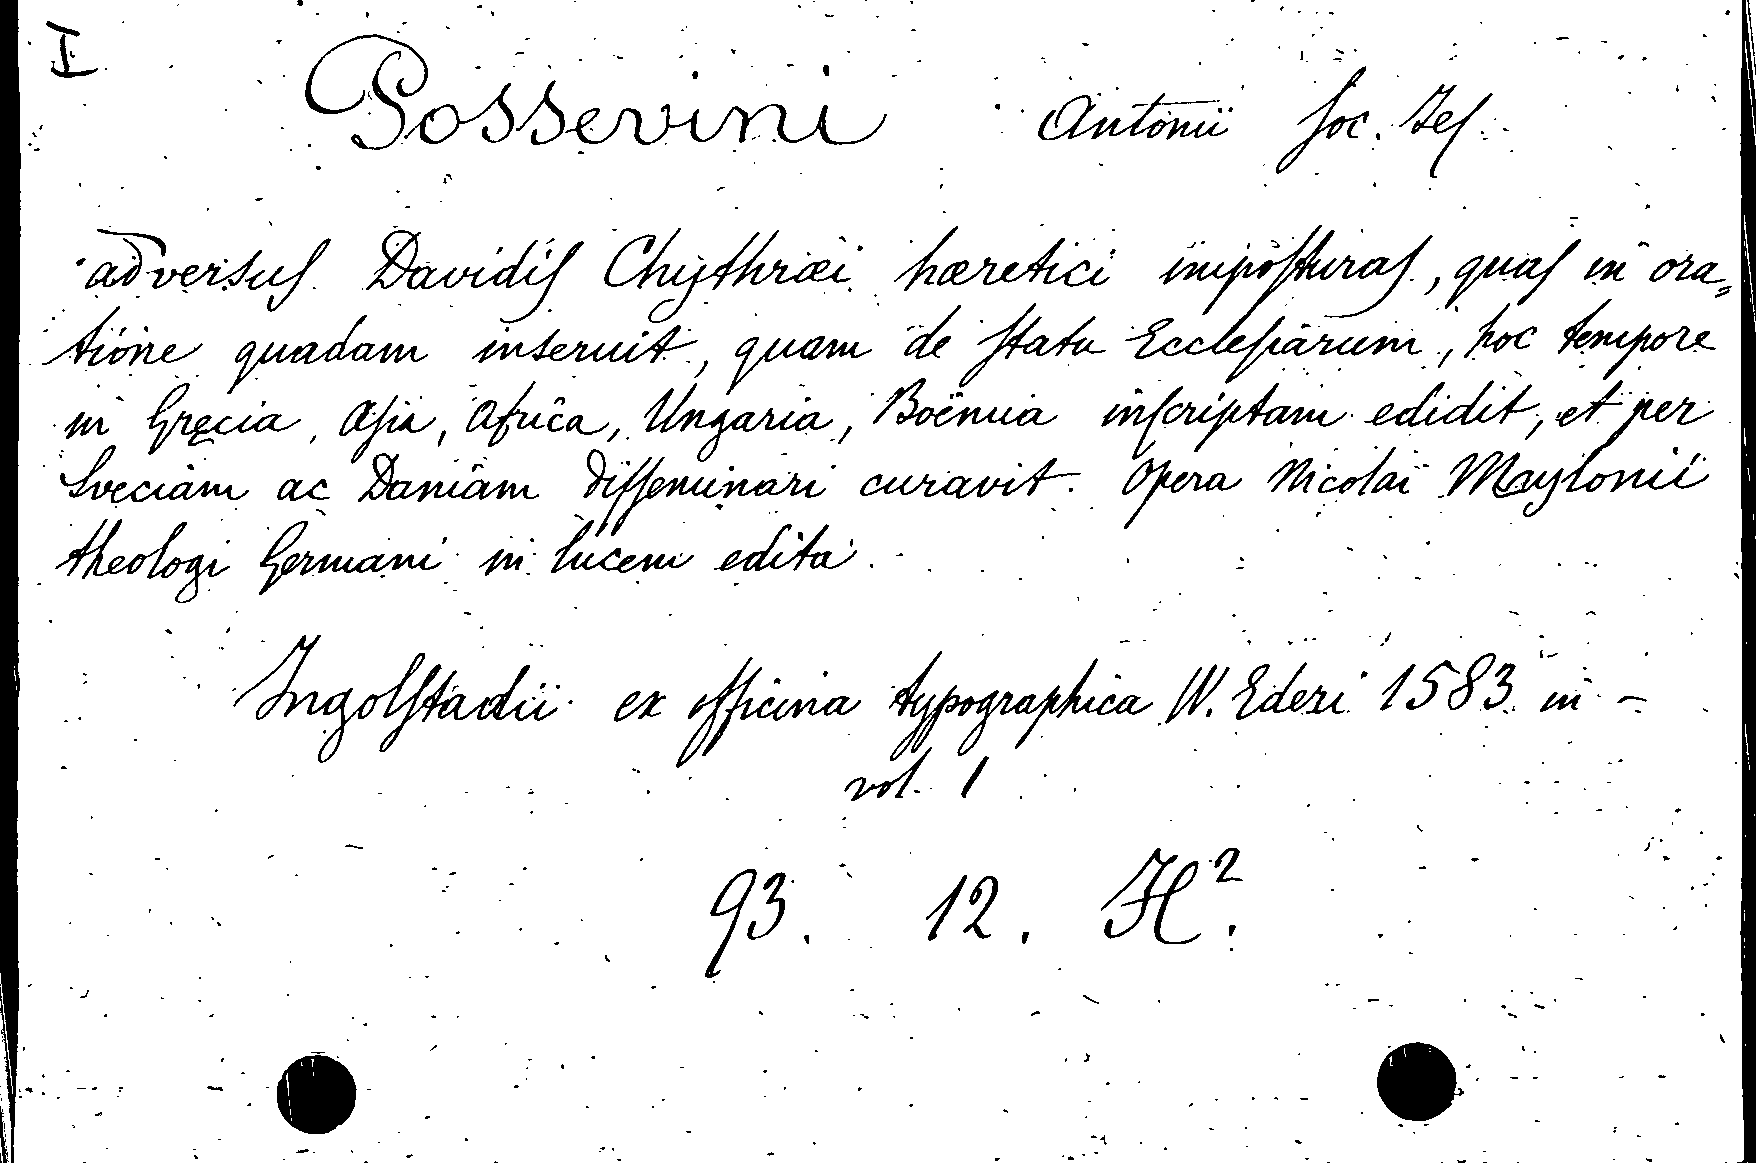 I
Possevini Antonii Soc. Jes
adversus Davidis Chythræi hæretici imposturas, quas in ora=
tione quadam inseruit, quam de statu Ecclesiarum, hoc tempore
in Gręcia, Asia, Africa, Ungaria, Boëmia inscriptam edidit, et per
Sveciam ac Daniam disseminari curavit. Opera Nicolai Maylonii
theologi Germani in lucem edita.
Ingolstadii ex officina typographica W. Ederi 1583 in -
vol. 1
93. 12. H².